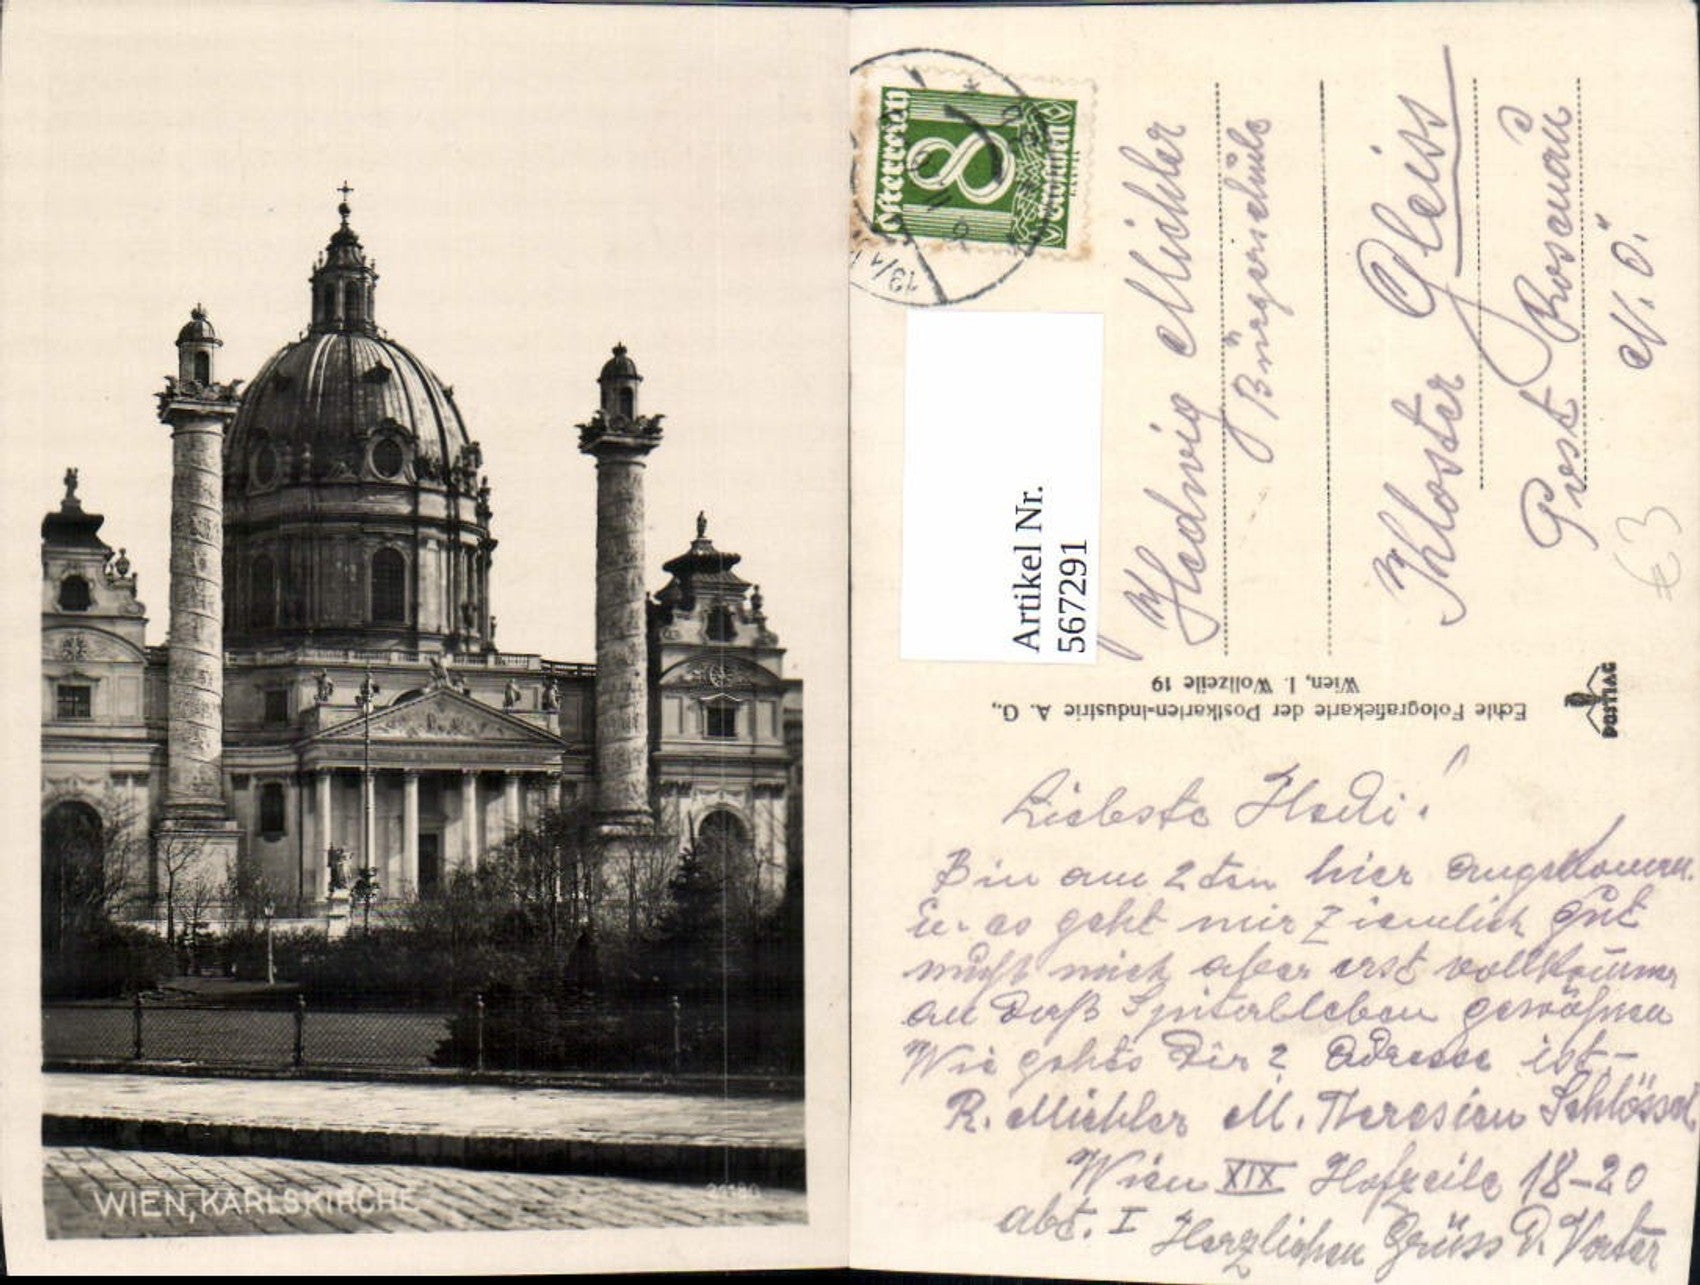 WIEN, KARLSKIRCHE
Österreich
8
Groschen
Artikel Nr.
567291
Hedwig Michler
Bürgerschule
Kloster Gleiss
Post Rosenau
N. Ö.
€3
Echte Fotografiekarte der Postkarten-Industrie A. G.,
Wien, I. Wollzeile 19
POSTIAG
Liebste Hedi!
Bin am 2ten hier angekommen.
es geht mir ziemlich gut
muß mich aber erst vollkommen
an daß Spitalleben gewöhnen
Wie gehts Dir? Adresse ist -
R. Michler M. Theresien Schlössel,
Wien XIX Hofzeile 18-20
abt. I Herzlichen Grüss D. Vater